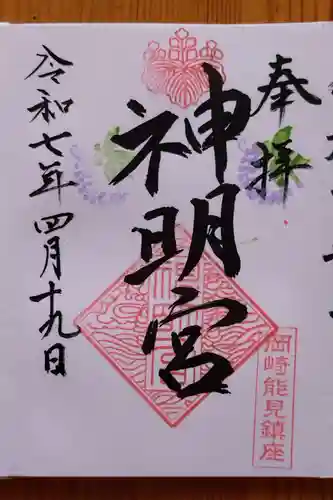 奉拝
岡崎能見鎮座
神明宮
令和七年四月十九日